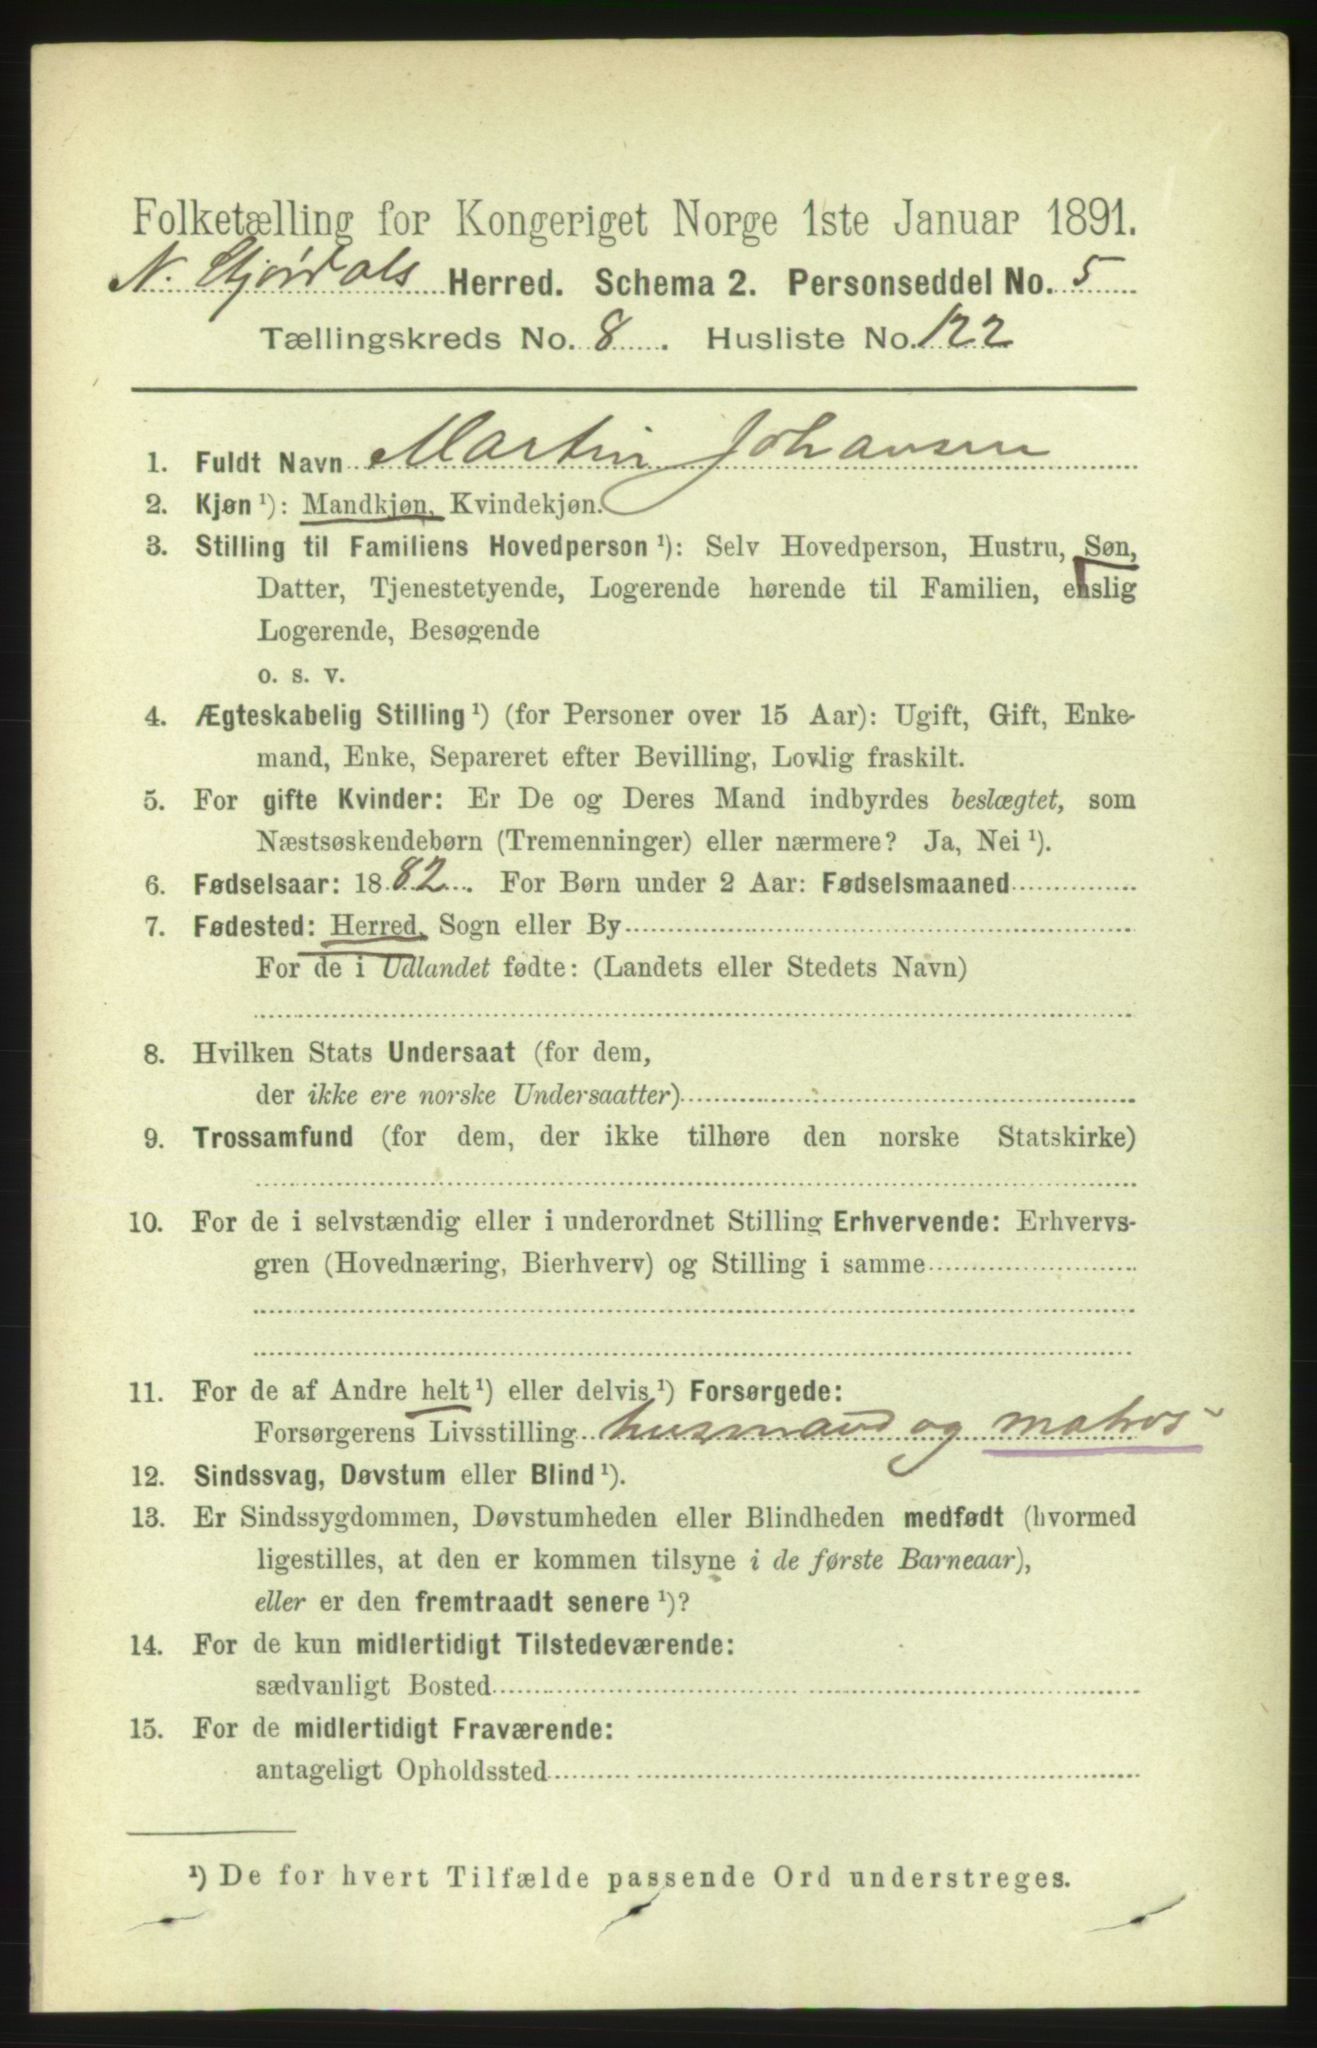 Folketælling for Kongeriget Norge 1ste Januar 1891.
N. Stjørdals Herred. Schema 2. Personseddel No. 5
Tællingskreds No. 8. Husliste No. 122
1. Fuldt Navn Martin Johansen
2. Kjøn ¹): Mandkjøn, Kvindekjøn.
3. Stilling til Familiens Hovedperson ¹): Selv Hovedperson, Hustru, Søn,
Datter, Tjenestetyende, Logerende hørende til Familien, enslig
Logerende, Besøgende
o. s. v.
4. Ægteskabelig Stilling ¹) (for Personer over 15 Aar): Ugift, Gift, Enke-
mand, Enke, Separeret efter Bevilling, Lovlig fraskilt.
5. For gifte Kvinder: Er De og Deres Mand indbyrdes beslægtet, som
Næstsøskendebørn (Tremenninger) eller nærmere? Ja, Nei ¹).
6. Fødselsaar: 1882. For Børn under 2 Aar: Fødselsmaaned
7. Fødested: Herred, Sogn eller By
For de i Udlandet fødte: (Landets eller Stedets Navn)
8. Hvilken Stats Undersaat (for dem,
der ikke ere norske Undersaatter)
9. Trossamfund (for dem, der ikke tilhøre den norske Statskirke)
10. For de i selvstændig eller i underordnet Stilling Erhvervende: Erhvervs-
gren (Hovednæring, Bierhverv) og Stilling i samme
11. For de af Andre helt ¹) eller delvis ¹) Forsørgede:
Forsørgerens Livsstilling husmand og matros
12. Sindssvag, Døvstum eller Blind ¹).
13. Er Sindssygdommen, Døvstumheden eller Blindheden medfødt (hvormed
ligestilles, at den er kommen tilsyne i de første Barneaar),
eller er den fremtraadt senere ¹)?
14. For de kun midlertidigt Tilstedeværende:
sædvanligt Bosted
15. For de midlertidigt Fraværende:
antageligt Opholdssted
¹) De for hvert Tilfælde passende Ord understreges.